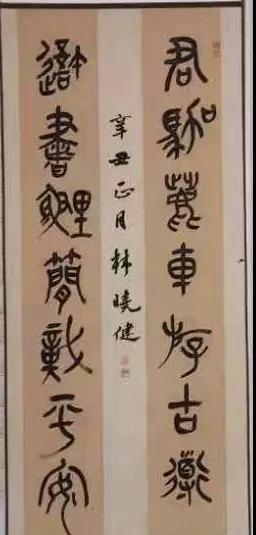 君駕鹿車存古道
書鯉簡平安
辛丑正月林曉健